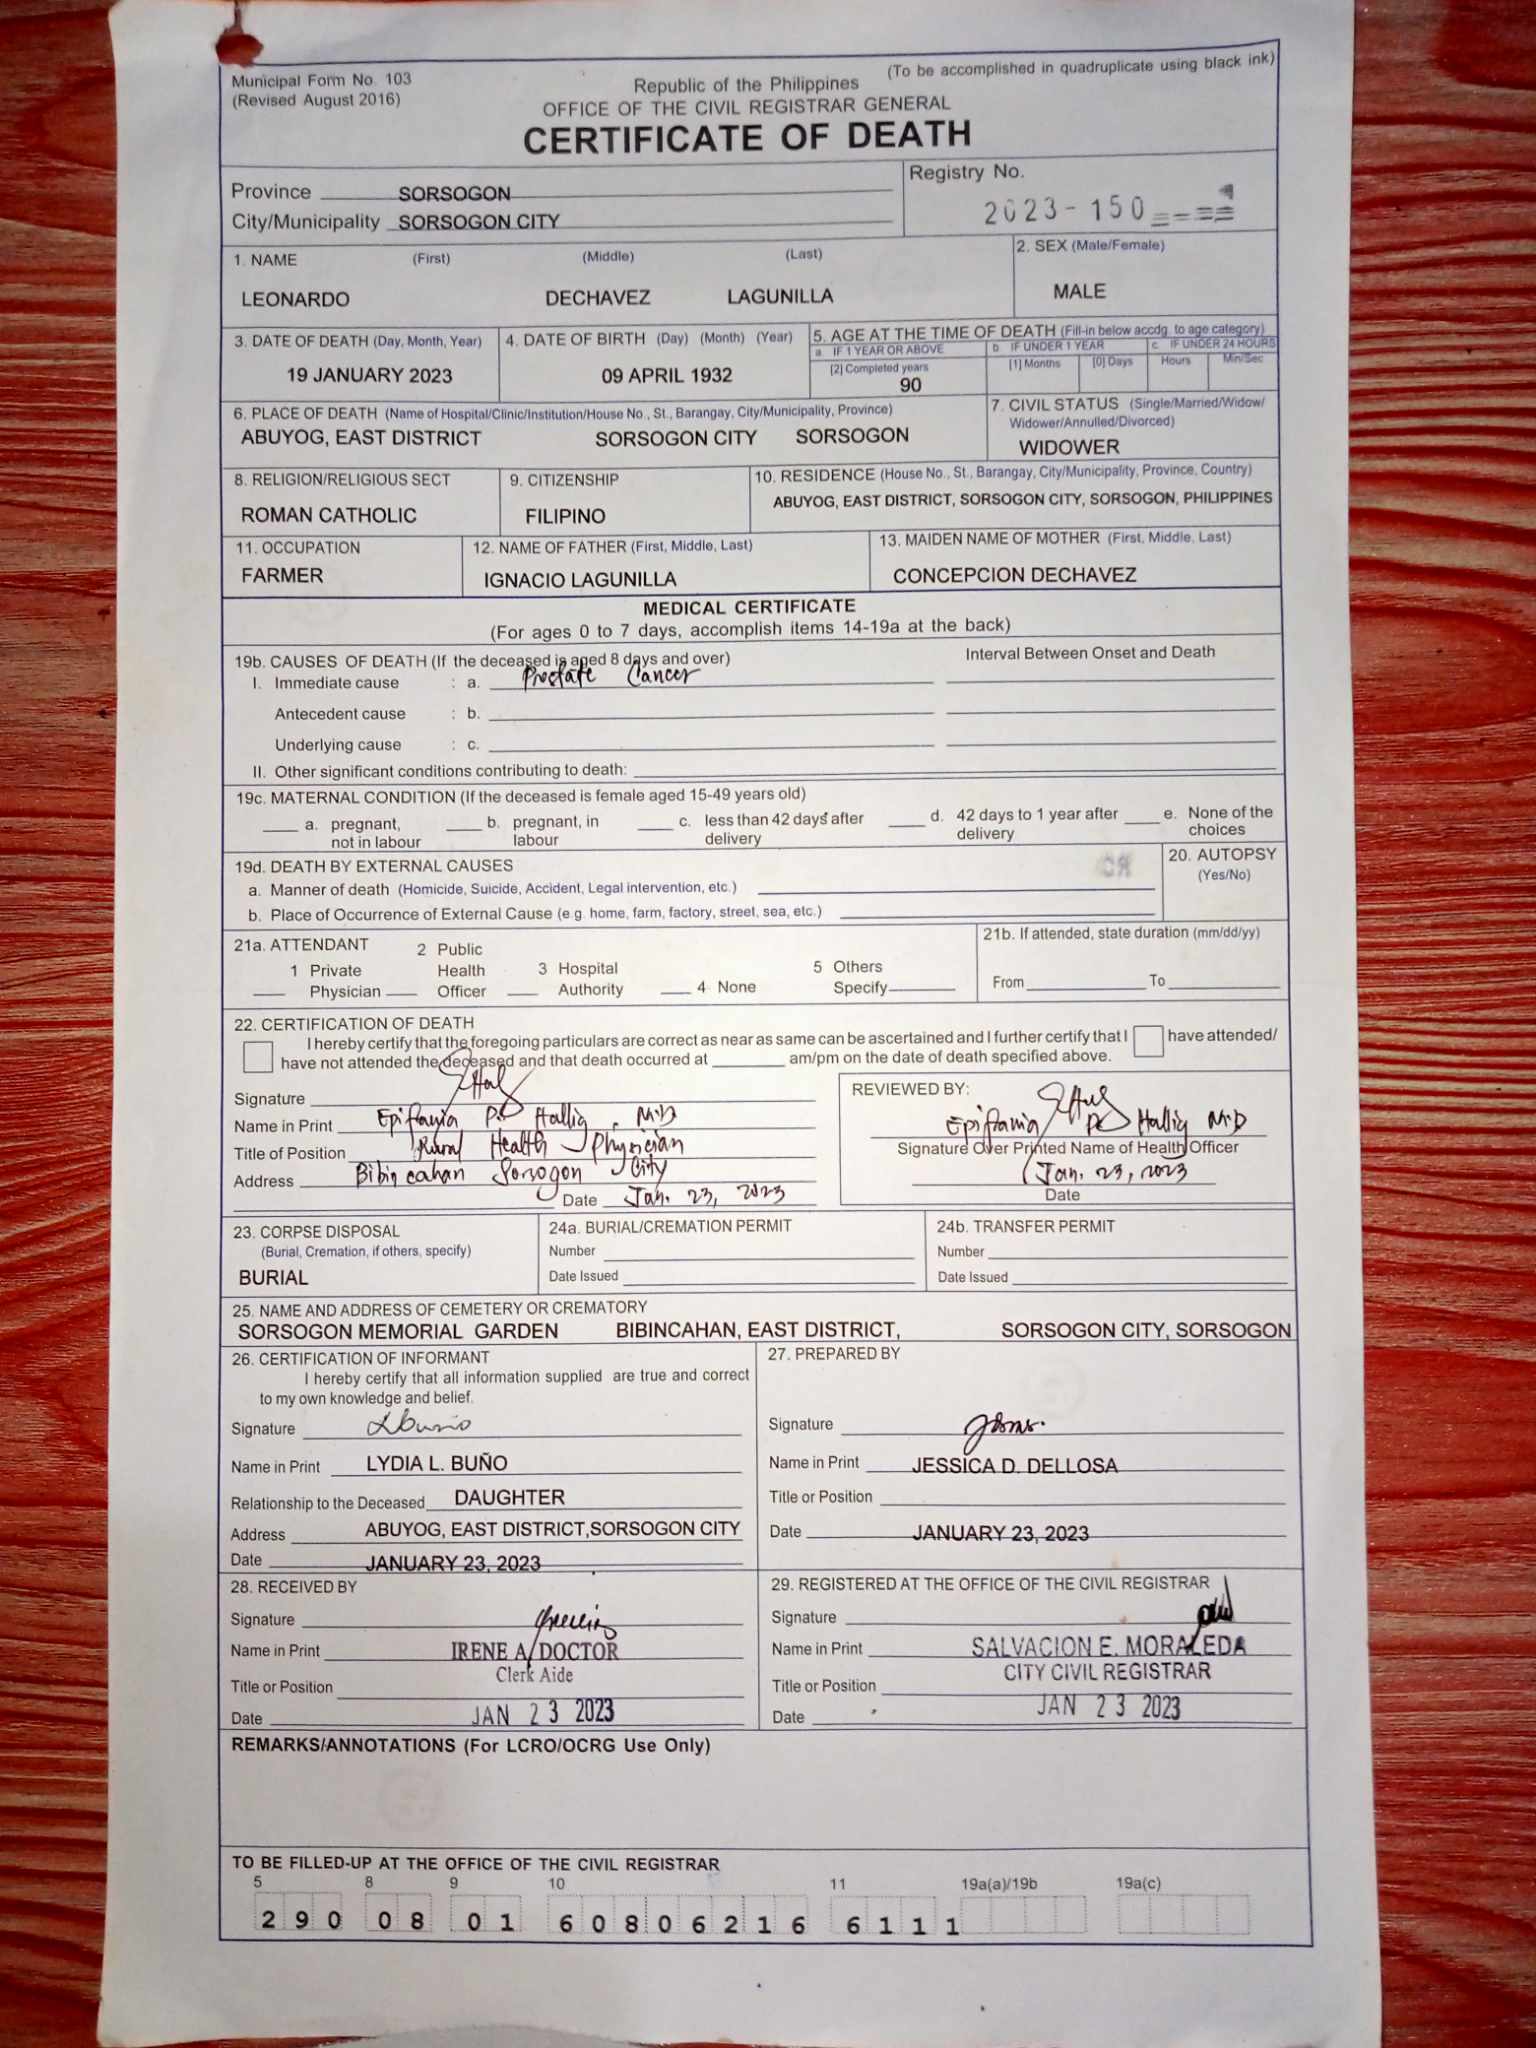 Municipal Form No. 103
(Revised August 2016)
(To be accomplished in quadruplicate using black ink)
Republic of the Philippines
OFFICE OF THE CIVIL REGISTRAR GENERAL
CERTIFICATE OF DEATH
Province SORSOGON
City/Municipality SORSOGON CITY
Registry No.
2023-150
1. NAME (First) (Middle) (Last)
LEONARDO DECHAVEZ LAGUNILLA
2. SEX (Male/Female)
MALE
3. DATE OF DEATH (Day, Month, Year)
19 JANUARY 2023
4. DATE OF BIRTH (Day) (Month) (Year)
09 APRIL 1932
5. AGE AT THE TIME OF DEATH (Fill-in below accdg. to age category)
a. IF 1 YEAR OR ABOVE
[2] Completed years
90
b IF UNDER 1 YEAR
[1] Months [0] Days
c. IF UNDER 24 HOURS
Hours Min/Sec
6. PLACE OF DEATH (Name of Hospital/Clinic/Institution/House No., St., Barangay, City/Municipality, Province)
ABUYOG, EAST DISTRICT SORSOGON CITY SORSOGON
7. CIVIL STATUS (Single/Married/Widow/
Widower/Annulled/Divorced)
WIDOWER
8. RELIGION/RELIGIOUS SECT
ROMAN CATHOLIC
9. CITIZENSHIP
FILIPINO
10. RESIDENCE (House No., St., Barangay, City/Municipality, Province, Country)
ABUYOG, EAST DISTRICT, SORSOGON CITY, SORSOGON, PHILIPPINES
11. OCCUPATION
FARMER
12. NAME OF FATHER (First, Middle, Last)
IGNACIO LAGUNILLA
13. MAIDEN NAME OF MOTHER (First, Middle, Last)
CONCEPCION DECHAVEZ
MEDICAL CERTIFICATE
(For ages 0 to 7 days, accomplish items 14-19a at the back)
19b. CAUSES OF DEATH (If the deceased is aged 8 days and over)
Interval Between Onset and Death
I. Immediate cause : a. Prostate Cancer
Antecedent cause : b.
Underlying cause : c.
II. Other significant conditions contributing to death:
19c. MATERNAL CONDITION (If the deceased is female aged 15-49 years old)
a. pregnant, not in labour
b. pregnant, in labour
c. less than 42 days after delivery
d. 42 days to 1 year after delivery
e. None of the choices
19d. DEATH BY EXTERNAL CAUSES
a. Manner of death (Homicide, Suicide, Accident, Legal intervention, etc.)
b. Place of Occurrence of External Cause (e.g. home, farm, factory, street, sea, etc.)
20. AUTOPSY
(Yes/No)
21a. ATTENDANT
1 Private Physician
2 Public Health Officer
3 Hospital Authority
4 None
5 Others Specify
21b. If attended, state duration (mm/dd/yy)
From To
22. CERTIFICATION OF DEATH
I hereby certify that the foregoing particulars are correct as near as same can be ascertained and I further certify that I have attended/
have not attended the deceased and that death occurred at am/pm on the date of death specified above.
Signature
Name in Print Epifania P. Hallig, M.D
Title of Position Rural Health Physician
Address Bibincahan Sorsogon City
Date Jan. 23, 2023
REVIEWED BY:
Epifania P. Hallig M.D
Signature Over Printed Name of Health Officer
Jan. 23, 2023
Date
23. CORPSE DISPOSAL
(Burial, Cremation, if others, specify)
BURIAL
24a. BURIAL/CREMATION PERMIT
Number
Date Issued
24b. TRANSFER PERMIT
Number
Date Issued
25. NAME AND ADDRESS OF CEMETERY OR CREMATORY
SORSOGON MEMORIAL GARDEN BIBINCAHAN, EAST DISTRICT, SORSOGON CITY, SORSOGON
26. CERTIFICATION OF INFORMANT
I hereby certify that all information supplied are true and correct
to my own knowledge and belief.
Signature
Name in Print LYDIA L. BUÑO
Relationship to the Deceased DAUGHTER
Address ABUYOG, EAST DISTRICT,SORSOGON CITY
Date JANUARY 23, 2023
27. PREPARED BY
Signature
Name in Print JESSICA D. DELLOSA
Title or Position
Date JANUARY 23, 2023
28. RECEIVED BY
Signature
Name in Print IRENE A. DOCTOR
Clerk Aide
Title or Position
Date JAN 23 2023
29. REGISTERED AT THE OFFICE OF THE CIVIL REGISTRAR
Signature
Name in Print SALVACION E. MORALEDA
CITY CIVIL REGISTRAR
Title or Position
Date JAN 23 2023
REMARKS/ANNOTATIONS (For LCRO/OCRG Use Only)
TO BE FILLED-UP AT THE OFFICE OF THE CIVIL REGISTRAR
5 8 9 10 11 19a(a)/19b 19a(c)
290 08 01 60806216 6111